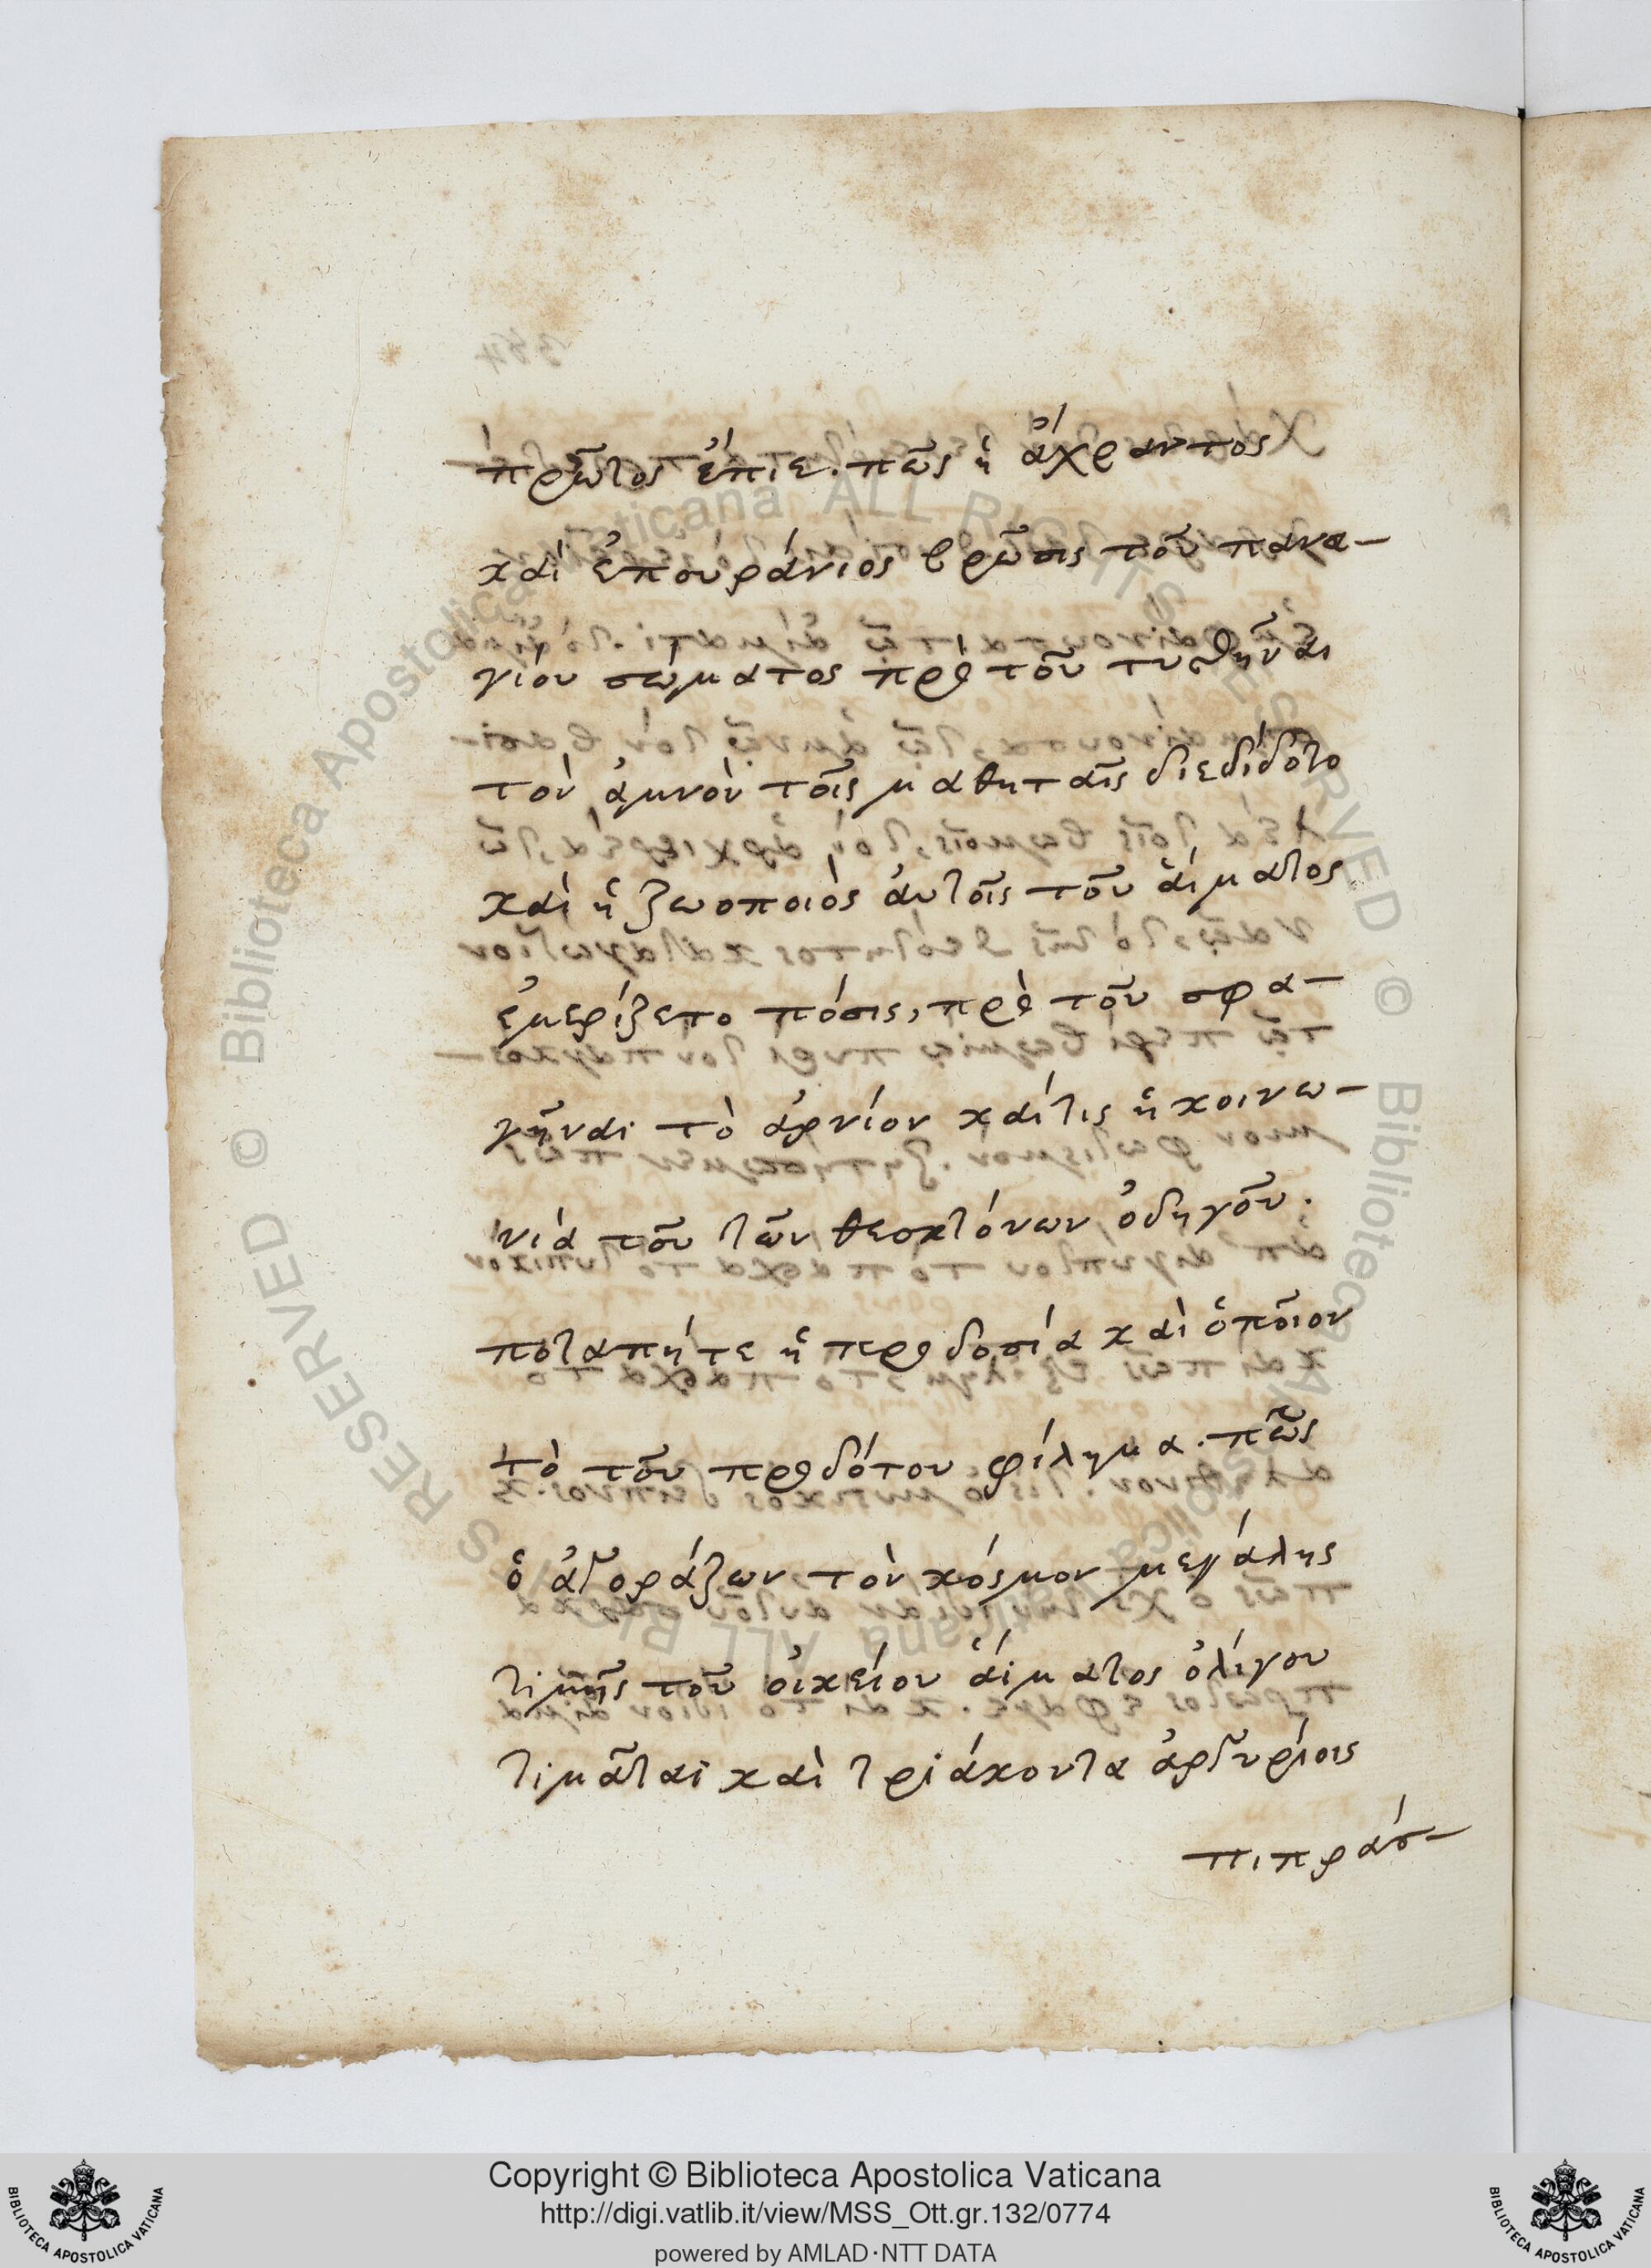 πρῶτος ἔπιε. πῶς ἡ ἄχραντος
καὶ ἐπουράνιος βρῶσις τοῦ πανα-
γίου σώματος πρὸ τοῦ τυθῆναι
τὸν ἀμνὸν τοῖς μαθηταῖς διεδίδοτο
καὶ ἡ ζωοποιὸς αὐτοῖς τοῦ αἵματος
ἐμερίζετο πόσις, πρὸ τοῦ σφα-
γῆναι τὸ ἀρνίον καίτις ἡ κοινω-
νία τοῦ τῶν θεοκτόνων ὁδηγοῦ.
ποταπήτε ἡ προδοσία καὶ ὁποῖον
τὸ τοῦ προδότου φίλημα. πῶς
ὁ ἀγοράζων τὸν κόσμον μεγάλης
τιμῆς τοῦ οἰκείου αἵματος ὀλίγου
τιμᾶται καὶ τριάκοντα ἀργυρίοις
πιπράσ-
Copyright © Biblioteca Apostolica Vaticana
http://digi.vatlib.it/view/MSS_Ott.gr.132/0774
powered by AMLAD·NTT DATA
BIBLIOTECA APOSTOLICA VATICANA
BIBLIOTECA APOSTOLICA VATICANA
© Biblioteca Apostolica Vaticana ALL RIGHTS RESERVED
© Biblioteca Apostolica Vaticana ALL RIGHTS RESERVED